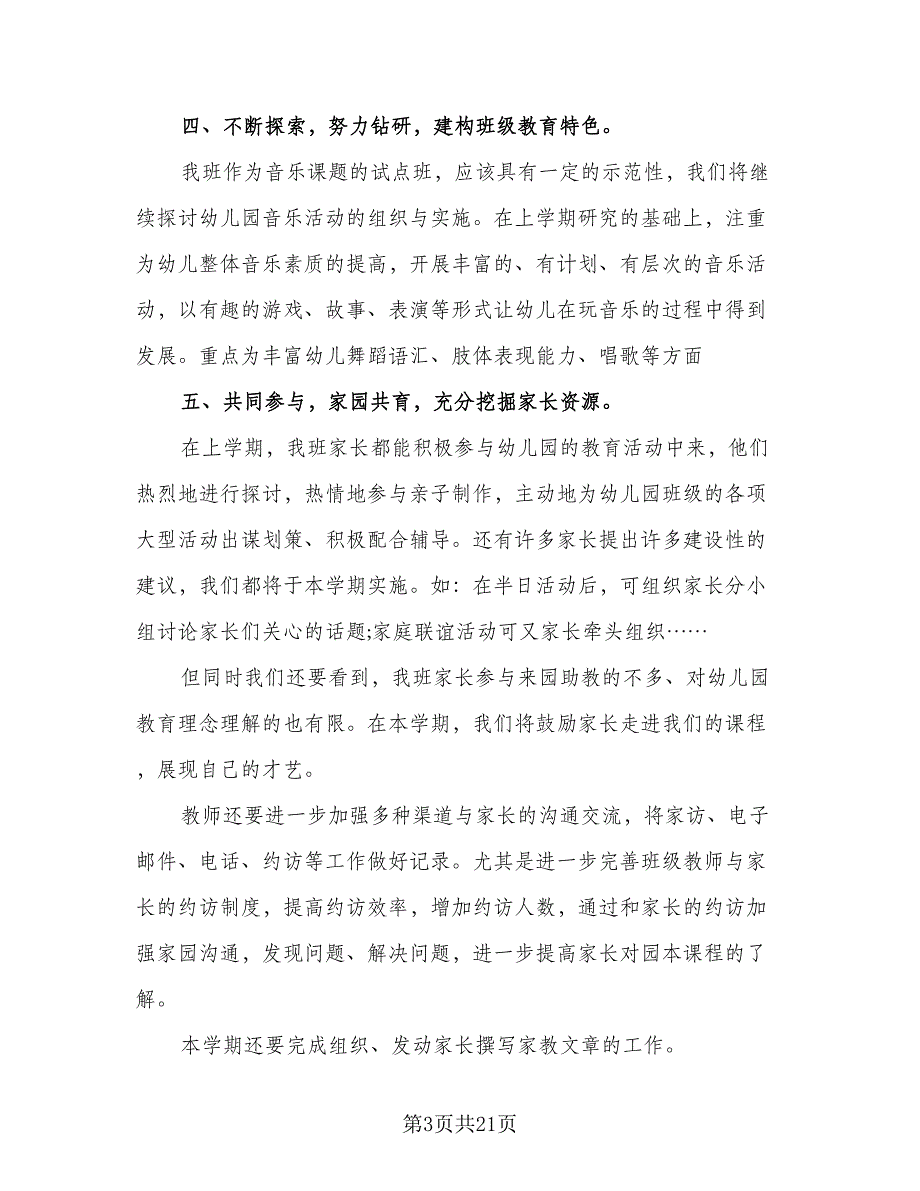 四、不断探索，努力钻研，建构班级教育特色。
我班作为音乐课题的试点班，应该具有一定的示范性，我们将继
续探讨幼儿园音乐活动的组织与实施。在上学期研究的基础上，注重
为幼儿整体音乐素质的提高，开展丰富的、有计划、有层次的音乐活
动，以有趣的游戏、故事、表演等形式让幼儿在玩音乐的过程中得到
发展。重点为丰富幼儿舞蹈语汇、肢体表现能力、唱歌等方面
五、共同参与，家园共育，充分挖掘家长资源。
在上学期，我班家长都能积极参与幼儿园的教育活动中来，他们
热烈地进行探讨，热情地参与亲子制作，主动地为幼儿园班级的各项
大型活动出谋划策、积极配合辅导。还有许多家长提出许多建设性的
建议，我们都将于本学期实施。如：在半日活动后，可组织家长分小
组讨论家长们关心的话题;家庭联谊活动可又家长牵头组织……
但同时我们还要看到，我班家长参与来园助教的不多、对幼儿园
教育理念理解的也有限。在本学期，我们将鼓励家长走进我们的课程
，展现自己的才艺。
教师还要进一步加强多种渠道与家长的沟通交流，将家访、电子
邮件、电话、约访等工作做好记录。尤其是进一步完善班级教师与家
长的约访制度，提高约访效率，增加约访人数，通过和家长的约访加
强家园沟通，发现问题、解决问题，进一步提高家长对园本课程的了
解。
本学期还要完成组织、发动家长撰写家教文章的工作。
第3页共21页